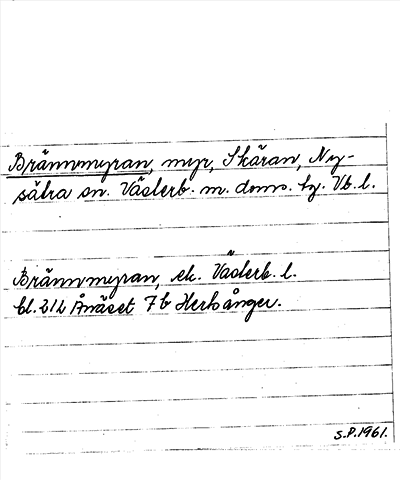 Brännmyran, myr, Skäran, Ny-
sätra sn. Västerb. m. doms. tg. Vb. l.
Brännmyran, ek. Västerb. l.
bl. 212 Ånäset 7 b Herrånger.
S.P. 1961.